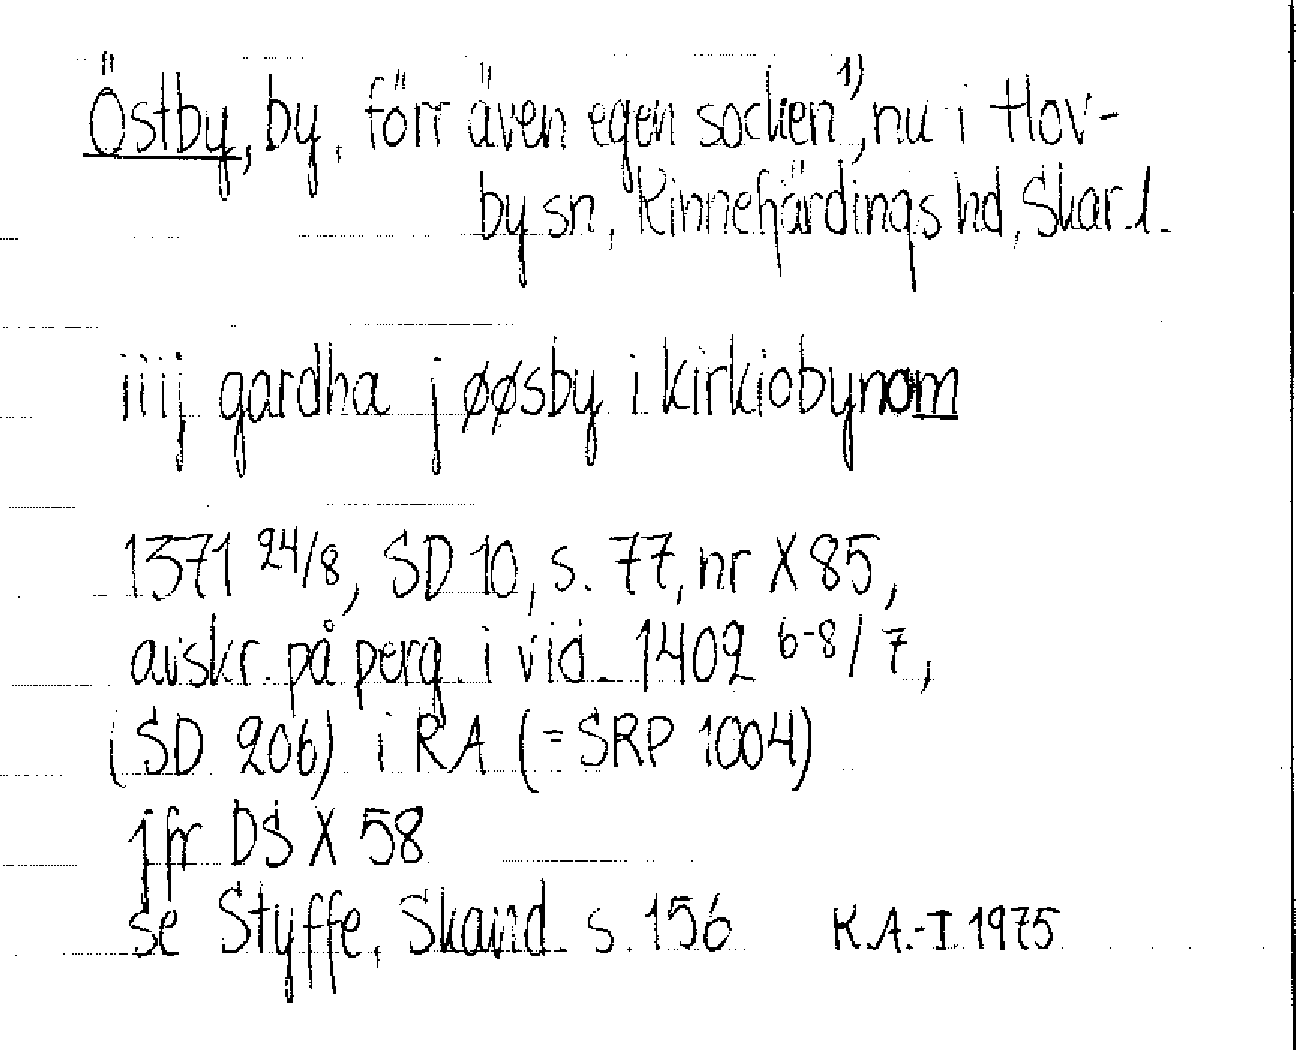 Östby, by, förr även egen socken¹⁾, nu i Hov-
by sn, Kinnefjärdings hd, Skar. l.
iiij gardha j øøsby i kirkiobynom
1371 24/8, SD 10, s. 77, nr X 85,
avskr. på perg. i vid. 1402 6-8/7,
(SD 206) i RA (=SRP 1004)
jfr DS X 58
se Styffe, Skand. s. 156 K.A.-T. 1975